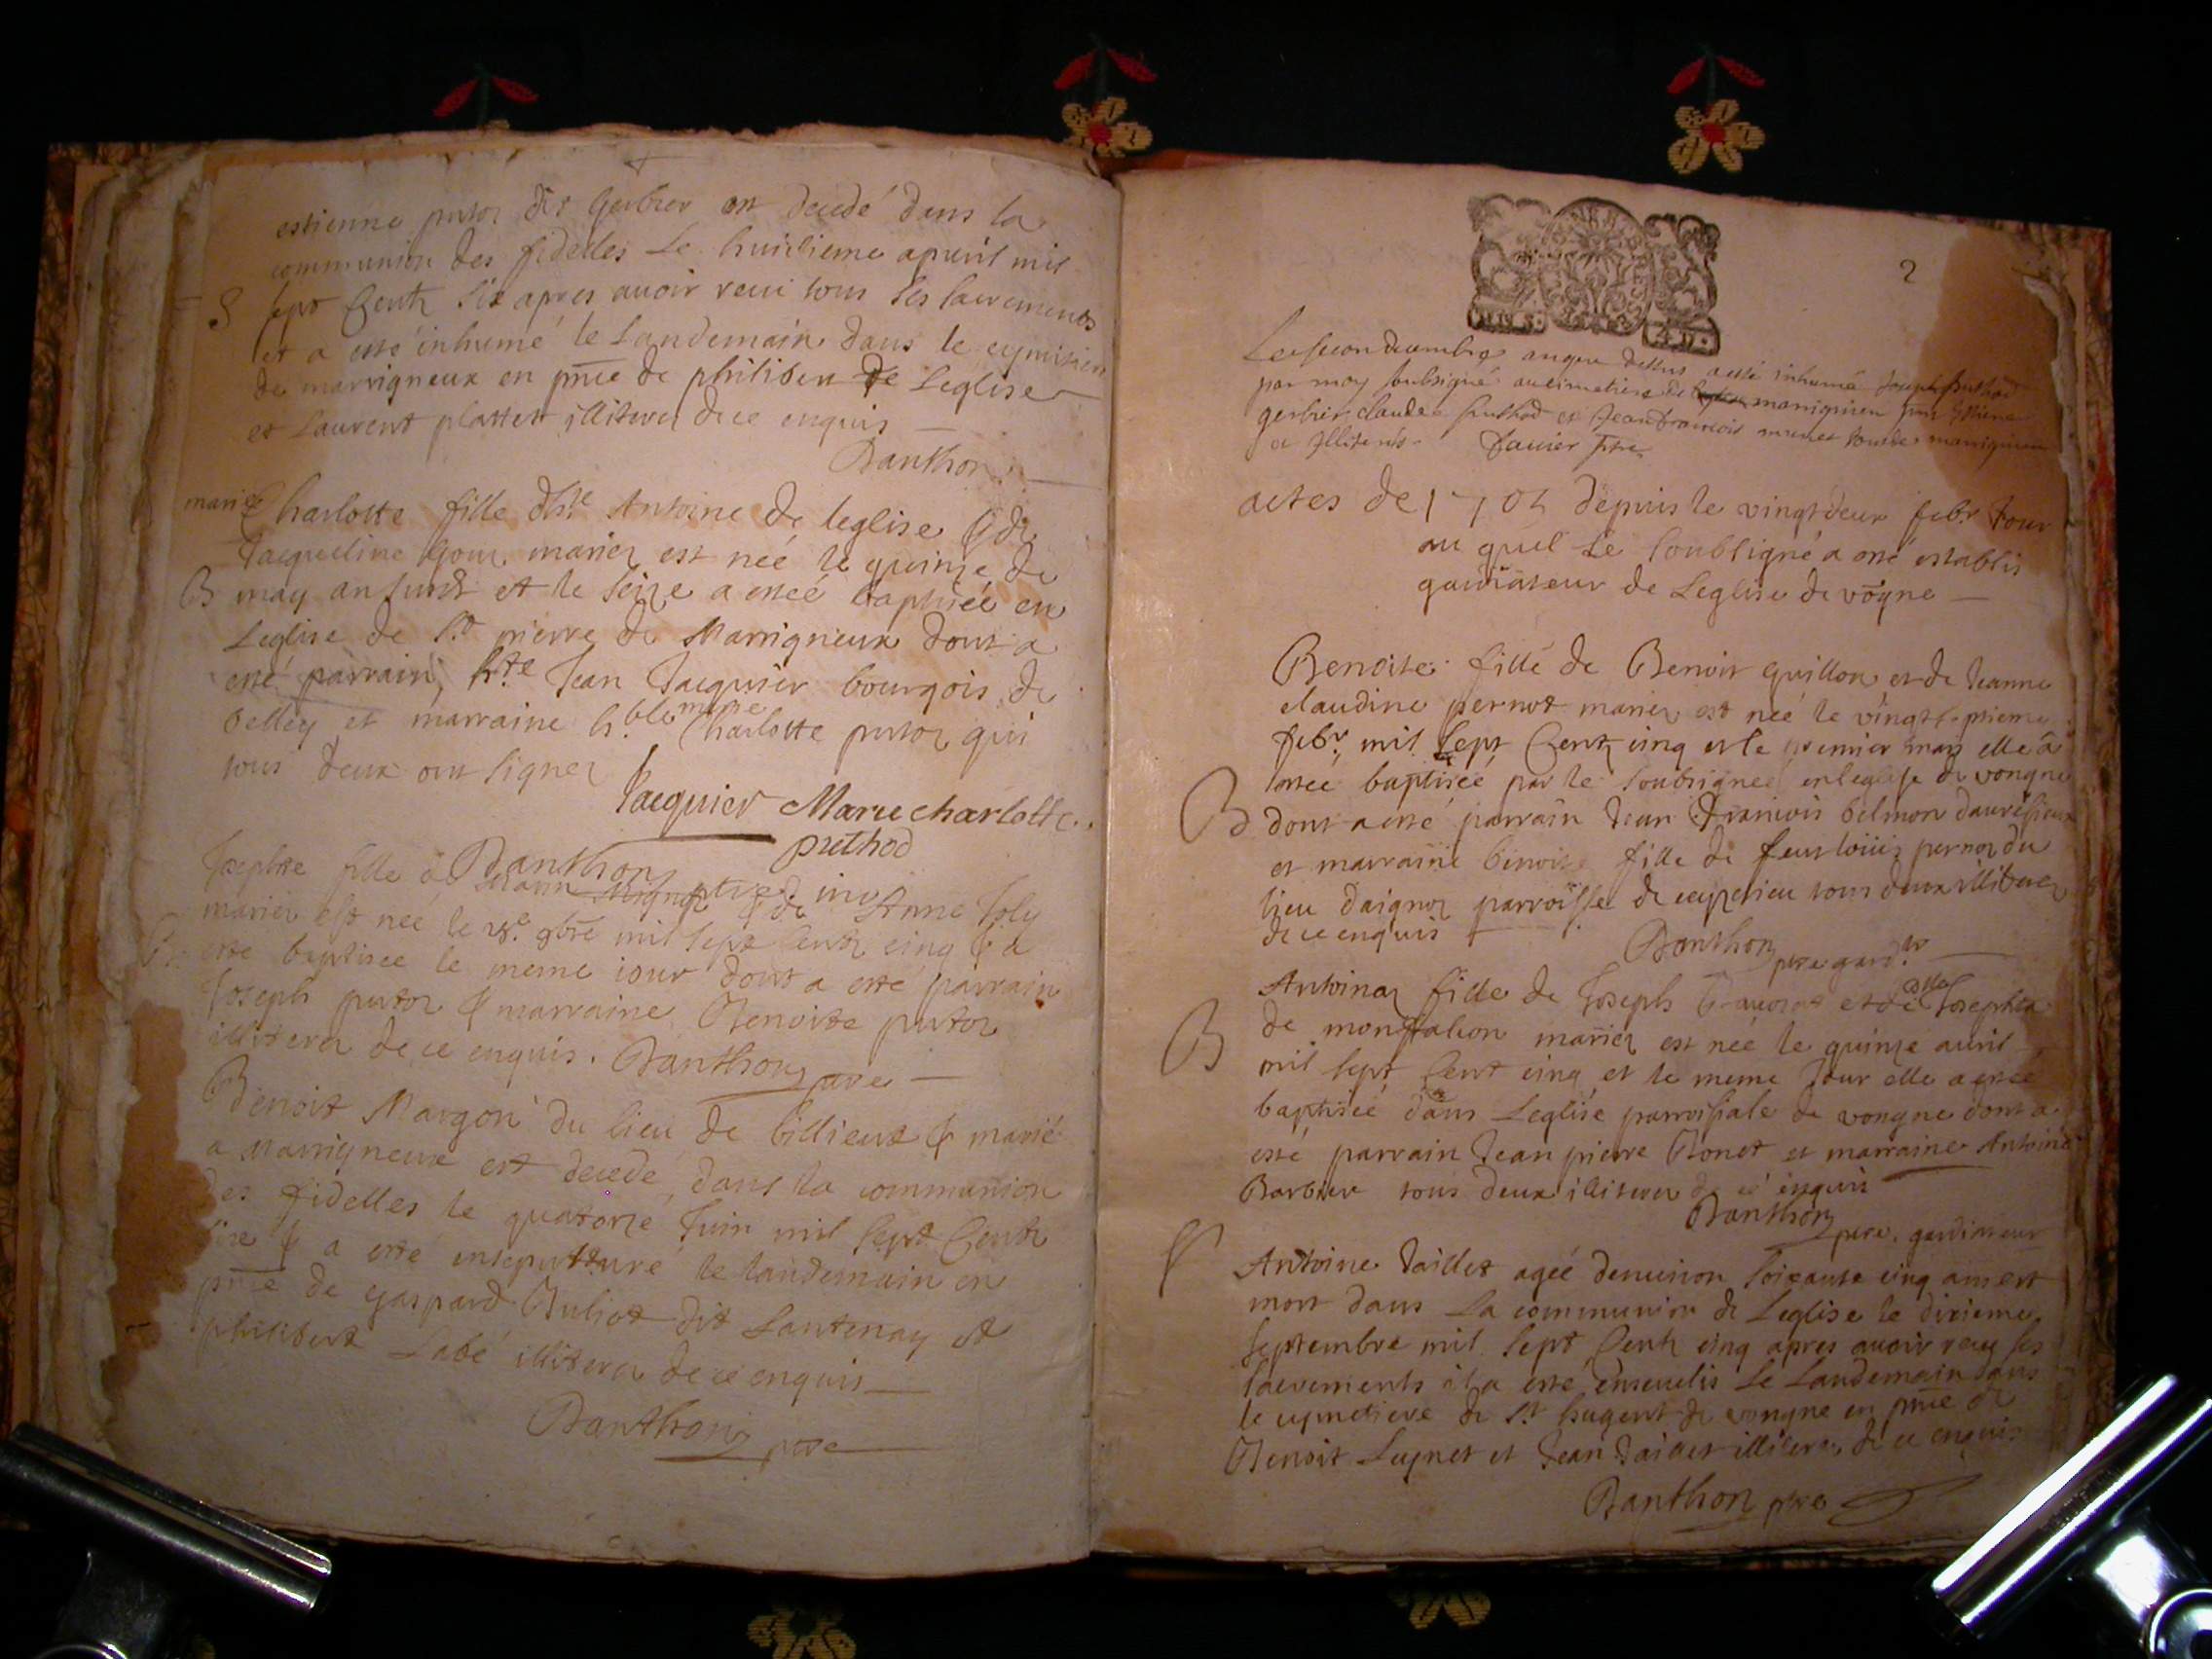 estienne putoz dit gerbier est decedé dans la
communion des fidelles Le huictieme apuril mil
S sept Centz six apres auoir receu tous les sacrements
et a esté inhumé le Landemain dans le cymitiere
de marrigneux en pnce de philibert de Leglise
et Laurent plattet illiterez de ce enquis
Banthon
marie
Charlotte fille dhte Antoine de leglise & de
Jacqueline Gour mariez est née le quinze de
B may an susd et le seize a esteé baptiseé en
Leglise de St pierre de Marrigneux dont a
esté parrain hte Jean Jacquier bourgois de
belley et marraine h.ble marie Charlotte putoz qui
tous deux ont signez
Jacquier Marie charlotte
puthod
Banthon
Josephte fille de & de Anne Joly
mariez est neé le 9bre mil sept Centz cinq & a
B esté baptisee le meme iour dont a esté parrain
Joseph putoz & marraine Benoite putoz
illiterez de ce enquis. Banthon ptre
Benoit Margon du lieu de billieux & marié
a Marrigneux est decedé dans la communion
des fidelles le quatorze Juin mil sept Centz
six & a esté ensepulturé le landemain en
pnce de gaspard Juliot dit Lantenay et
philibert Labé illiterez de ce enquis
Banthon ptre
2
an que dessus a esté inhumé Joseph puthod
par moy soubsigné au cimetiere de marrignieu
gerbier claude puthod et Jean francois
et illiterés Janier ptre
actes de 1705 depuis le vingtdeux febr Jour
au quel Le soubsigné a esté establis
gardiateur de Leglise de vogne
Benoite fille de Benoit guillon et de Jeanne
claudine pernot mariez est neé le vingtseptieme
febr mil sept Centz cinq et le premier mars elle a
B esteé baptiseé par le soubsigneé en leglise de vongne
dont a esté parrain Jean francois belmon
et marraine benoite fille de feu louis pernoz du
lieu daignoz parroisse de ceyzerieu tous deux illiterez
de ce enquis Banthon ptre gard.r
Antoinaz fille de Joseph et de delle Josephta
B de montfalcon mariez est neé le quinze auril
mil sept Cent cinq et le meme Jour elle a esteé
baptiseé dans Leglise parroissiale de vongne dont a
esté parrain Jean pierre Bonet et marraine Antoine
Barbier tous deux illiterez de ce enquis
Banthon ptre gardiateur
S Antoine Taillet ageé denuiron soixante cinq ans est
mort dans La communion de Leglise le dixieme
septembre mil sept Centz cinq apres auoir receu les
sacrements il a esté enseuelis Le Landemain dans
le cymetiere de St hugent de vongne en pnce de
Benoit Luynet et Jean Taillet illiterez de ce enquis
Banthon ptre